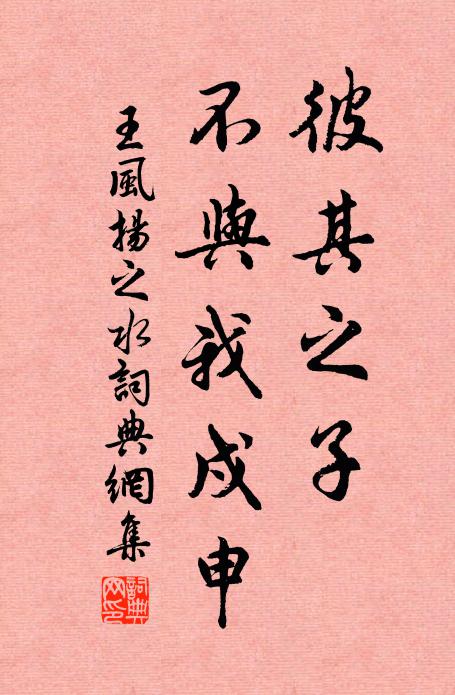 彼其之子
不與我戍申
王風揚之水詞典網集
詞典網印